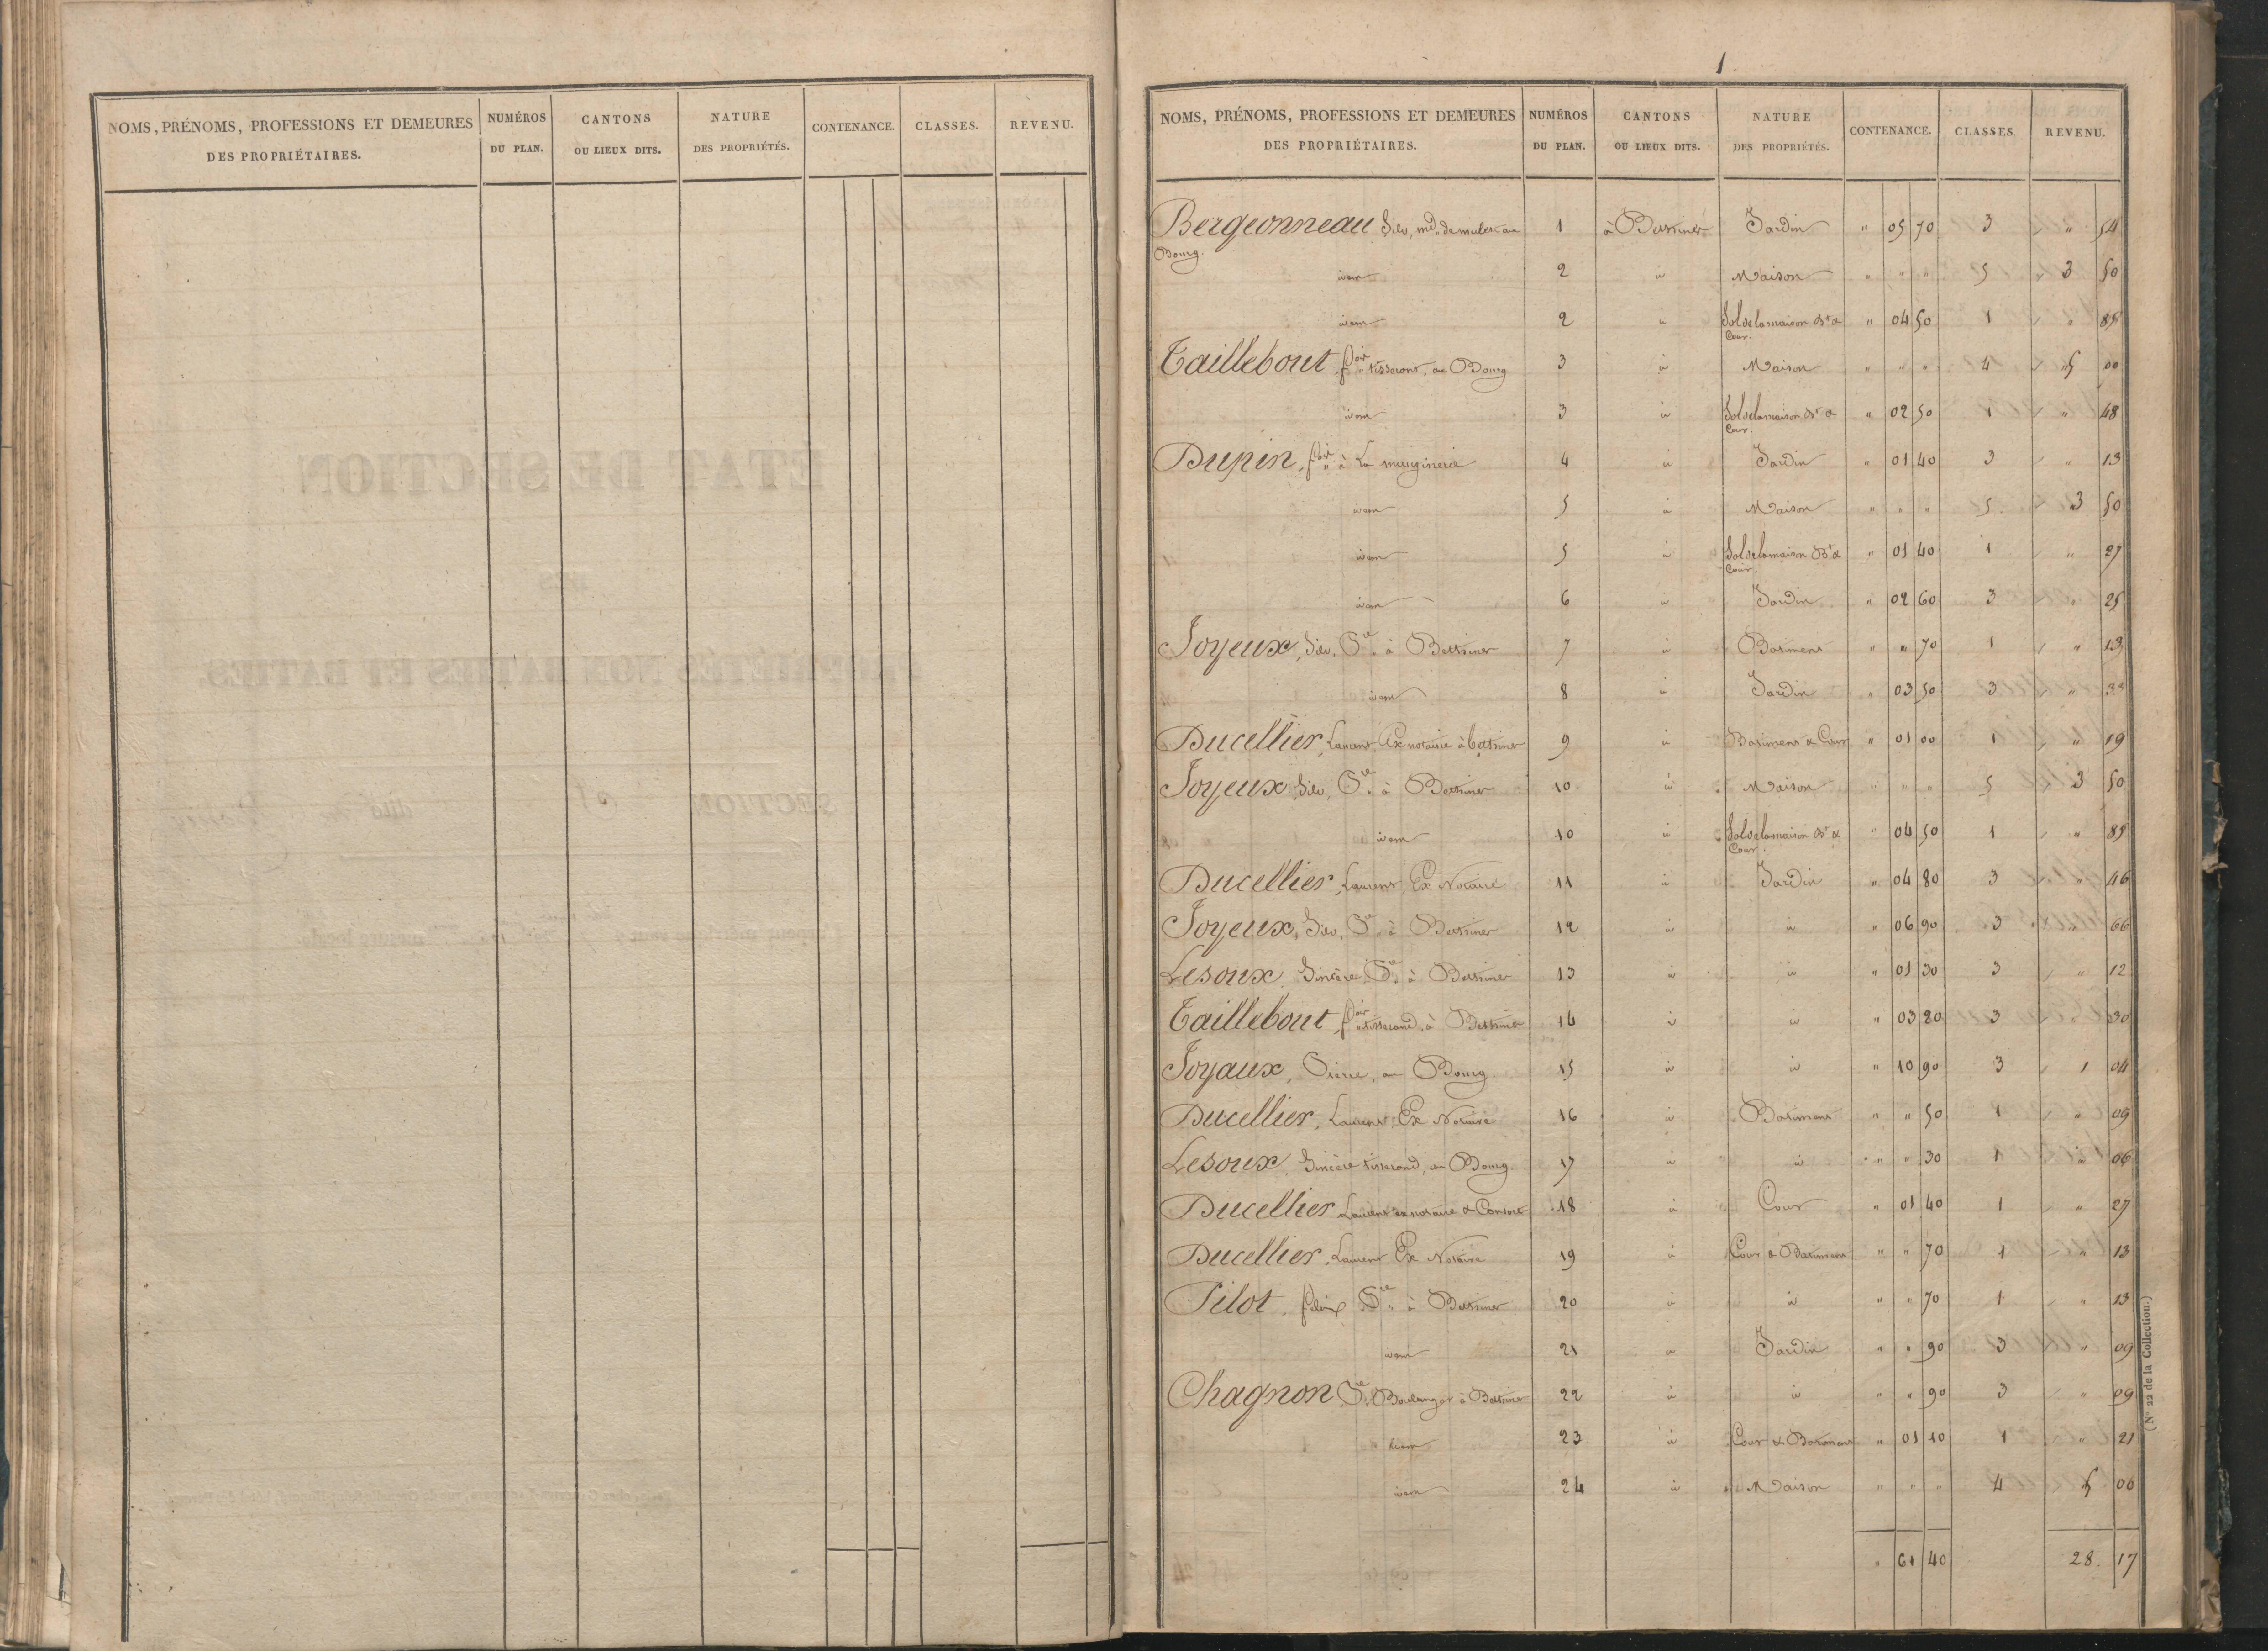 NOMS, PRÉNOMS, PROFESSIONS ET DEMEURES DES PROPRIÉTAIRES. NUMÉROS DU PLAN. CANTONS OU LIEUX DITS. NATURE DES PROPRIÉTÉS. CONTENANCE. CLASSES. REVENU.
1
NOMS, PRÉNOMS, PROFESSIONS ET DEMEURES DES PROPRIÉTAIRES. NUMÉROS DU PLAN. CANTONS OU LIEUX DITS. NATURE DES PROPRIÉTÉS. CONTENANCE. CLASSES. REVENU.
Bergeonneau Silv, md. de mules au 1 à Jardin " 05 70 3 " 54
Bourg.
idem 2 id Maison " " " 5 3 50
idem 2 id Sol de la maison Bt &
Cour. " 04 50 1 " 85
Taillebout fois. tisserant, au Bourg 3 id Maison " " " 4 5 00
idem 3 id Sol de la maison Bt &
Cour. " 02 50 1 " 48
Dupin, fois. à La 4 id Jardin " 01 40 3 " 13
idem 5 id Maison " " " 5 3 50
idem 5 id Sol de la maison Bt &
Cour. " 01 40 1 " 27
idem 6 id Jardin " 02 60 3 " 25
Joyeux, Silv. 7 id Batimens " " 70 1 " 13
idem 8 id Jardin " 03 50 3 " 33
Ducellier, Laurent, Ex notaire 9 id Batimens & Cour " 01 00 1 " 19
Joyeux Silv. 10 id Maison " " " 5 3 50
idem 10 id Sol de la maison Bt &
Cour. " 04 50 1 " 85
Ducellier, Laurent, Ex Notaire 11 id Jardin " 04 80 3 " 46
Joyeux, Silv. 12 id id " 06 90 3 " 66
Lesoux, Sincère 13 id id " 01 30 3 " 12
Taillebout, fois. tisserand, à 14 id id " 03 20 3 " 30
Joyaux, Pierre, au Bourg 15 id id " 10 90 3 1 04
Ducellier, Laurent, Ex Notaire 16 id Batimens " " 50 1 " 09
Lesoux, Sincère tisserand, au Bourg 17 id id " " 30 1 " 06
Ducellier, Laurent ex notaire & Consort 18 id Cour " 01 40 1 " 27
Ducellier, Laurent Ex Notaire 19 id Cour & Batimens " " 70 1 " 13
Pilot, félix 20 id id " " 70 1 " 13
idem 21 id Jardin " " 90 3 " 09
Chagnon Boulanger à 22 id id " " 90 3 " 09
idem 23 id Cour & Batimens " 01 10 1 " 21
idem 24 id Maison " " " 4 5 00
" 61 40 28. 17
(N° 22 de la Collection.)